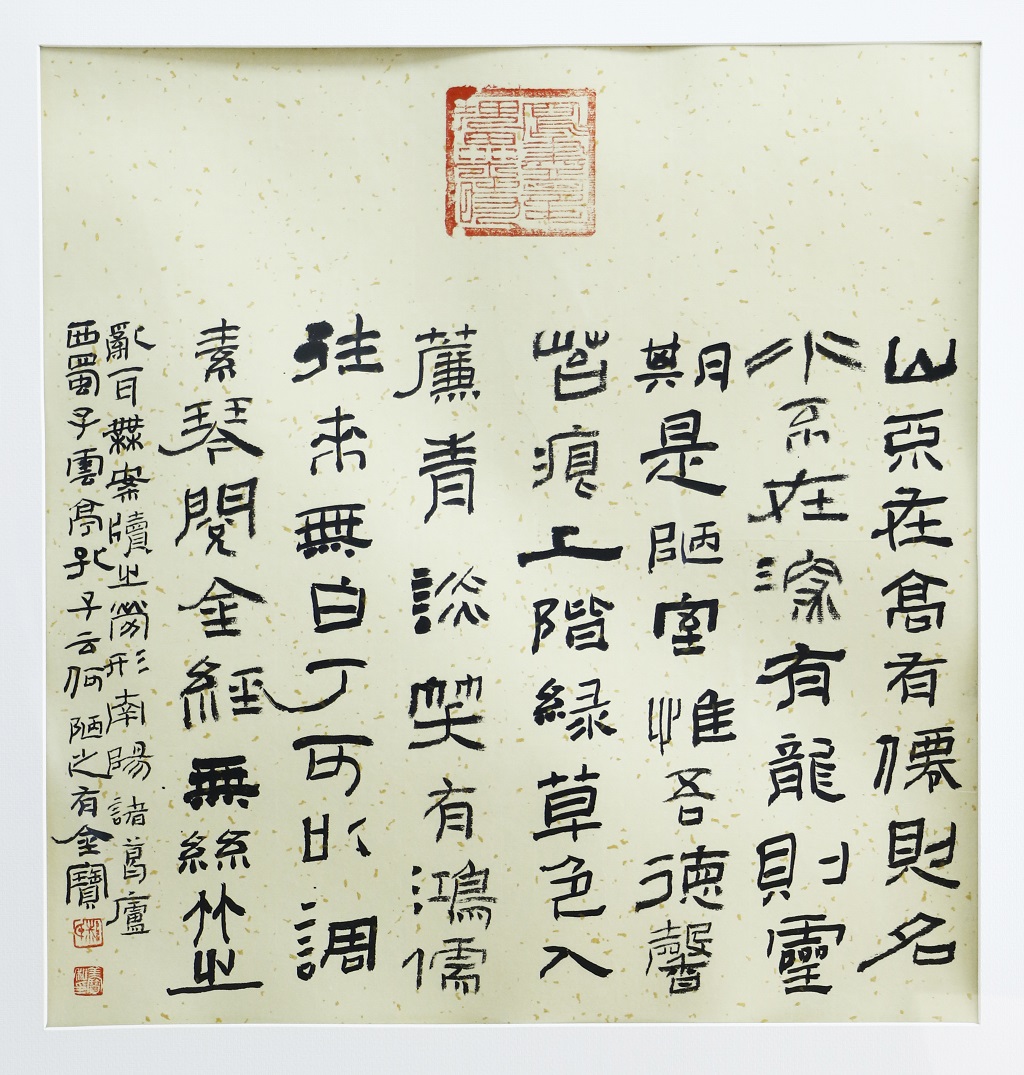 山不在高有僊則名
水不在深有龍則靈
期是陋室惟吾德馨
苔痕上階緑草色入
薕青談笑有鴻儒
往來無白丁可以調
素琴閱金經無絲竹之
亂耳無案牘之勞形南陽諸葛廬
西蜀子雲亭孔子云何陋之有金寶